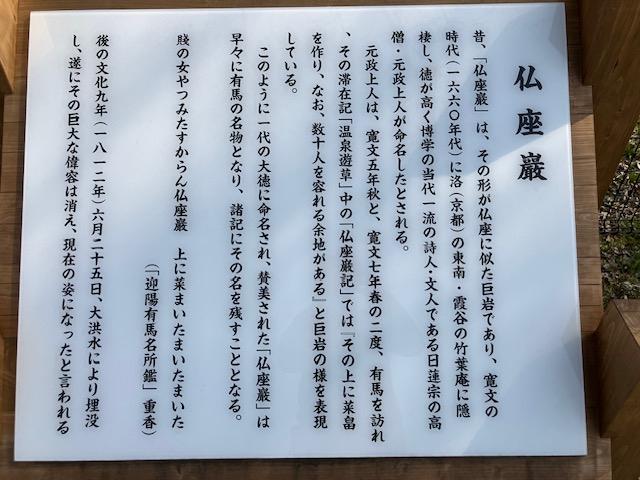 仏座巌
昔、「仏座巌」は、その形が仏座に似た巨岩であり、寛文の
時代（一六六〇年代）に洛（京都）の東南・霞谷の竹葉庵に隠
棲し、徳が高く博学の当代一流の詩人・文人である日蓮宗の高
僧・元政上人が命名したとされる。
元政上人は、寛文五年秋と、寛文七年春の二度、有馬を訪れ
、その滞在記「温泉遊草」中の「仏座巌記」では『その上に菜畠
を作り、なお、数十人を容れる余地がある』と巨岩の様を表現
している。
このように一代の大徳に命名され、賛美された「仏座巌」は
早々に有馬の名物となり、諸記にその名を残すこととなる。
賤の女やつみたすからん仏座巌　上に菜まいたまいたまいた
（「迎陽有馬名所鑑」重香）
後の文化九年（一八一二年）六月二十五日、大洪水により埋没
し、遂にその巨大な偉容は消え、現在の姿になったと言われる